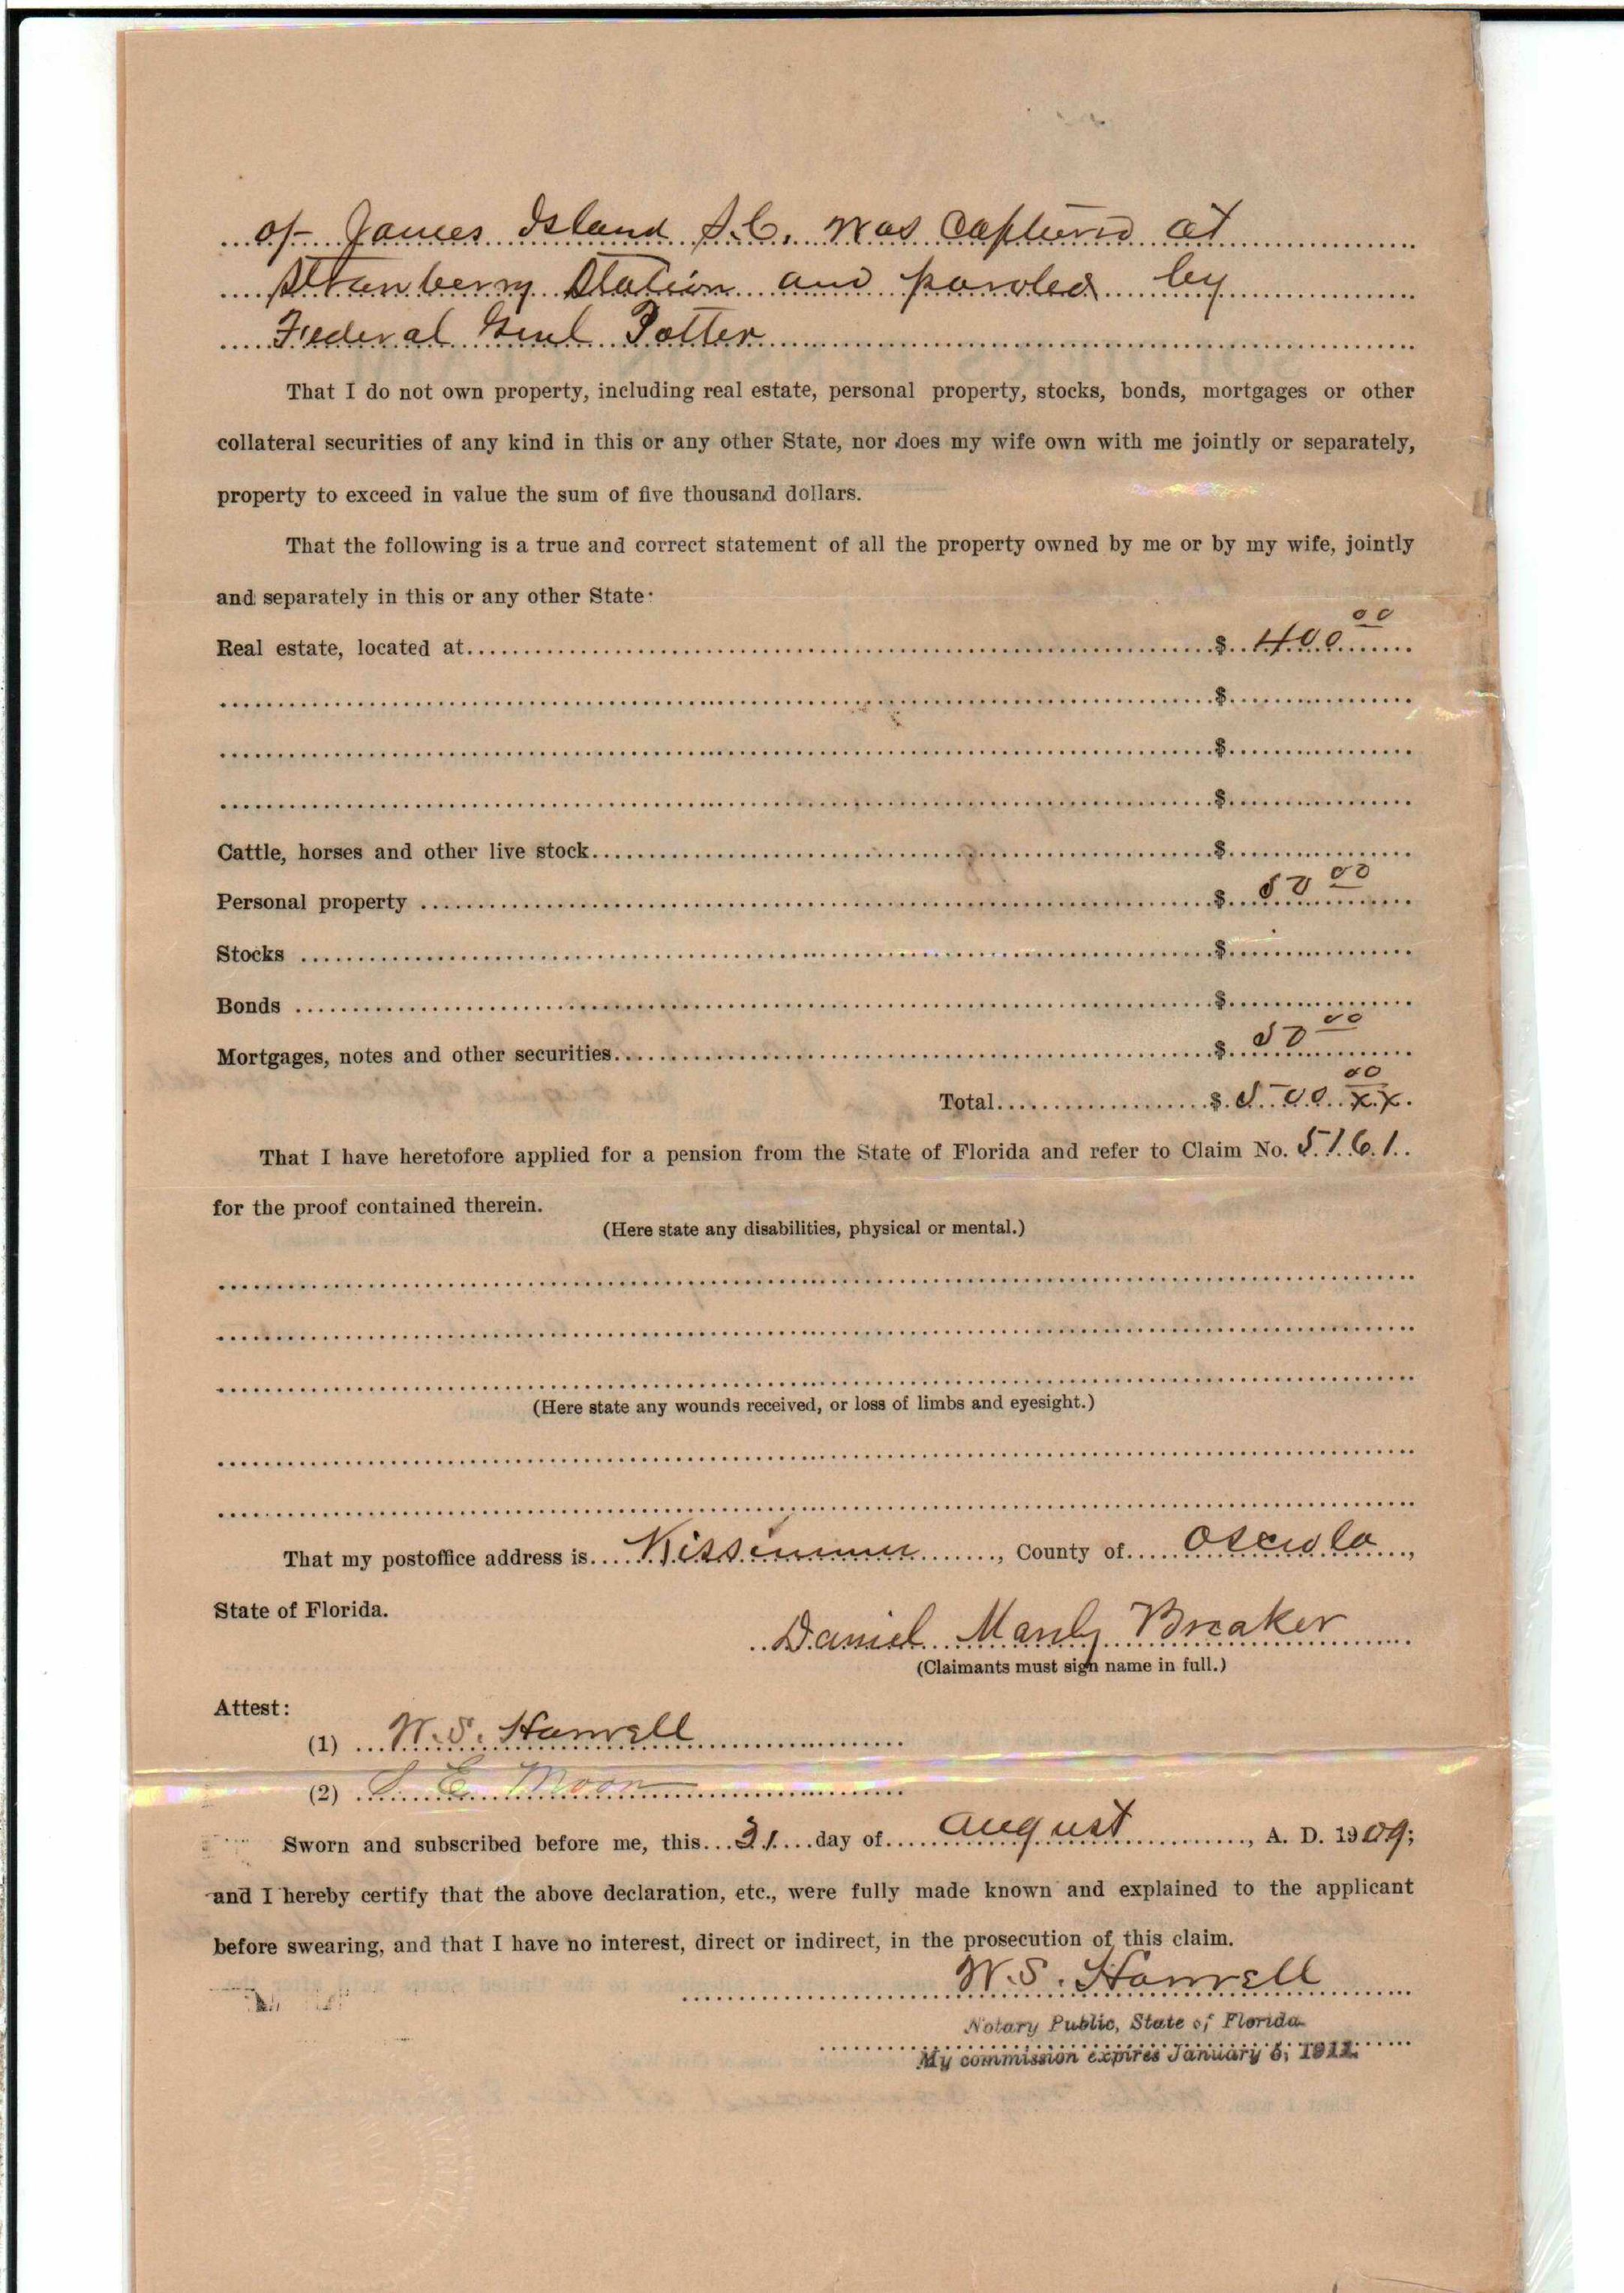 of James Island S.C. was captured at
Strawberry Station and paroled by
Federal Genl Potter
That I do not own property, including real estate, personal property, stocks, bonds, mortgages or other
collateral securities of any kind in this or any other State, nor does my wife own with me jointly or separately,
property to exceed in value the sum of five thousand dollars.
That the following is a true and correct statement of all the property owned by me or by my wife, jointly
and separately in this or any other State:
Real estate, located at $ 400.00
$
$
$
Cattle, horses and other live stock $
Personal property $ 50 00
Stocks $
Bonds $
Mortgages, notes and other securities $ 50 00
Total $ 500 00 xx
That I have heretofore applied for a pension from the State of Florida and refer to Claim No. 5161
for the proof contained therein.
(Here state any disabilities, physical or mental.)
(Here state any wounds received, or loss of limbs and eyesight.)
That my postoffice address is Kissimmee, County of Osceola,
State of Florida.
Daniel Manly Breaker
(Claimants must sign name in full.)
Attest:
(1) W. S. Harwell
(2) S. E. Moon
Sworn and subscribed before me, this 31 day of August, A. D. 1909;
and I hereby certify that the above declaration, etc., were fully made known and explained to the applicant
before swearing, and that I have no interest, direct or indirect, in the prosecution of this claim.
W. S. Harwell
Notary Public, State of Florida
My commission expires January 6, 1911.